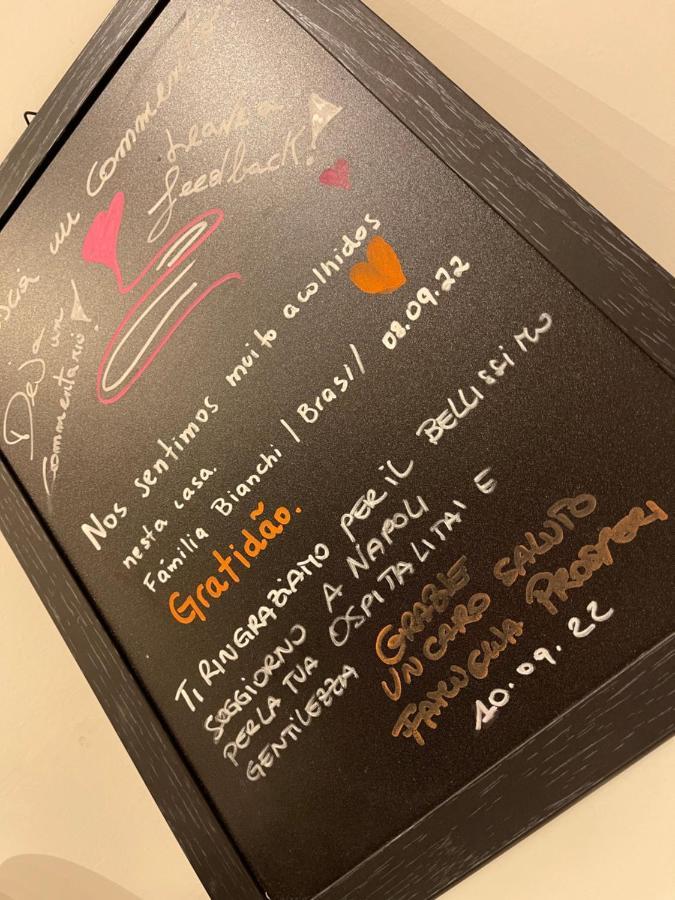 un commento
Leave a
feedback!
Deja un
commentario!
Nos sentimos muito acolhidos
nesta casa.
Fámilia Bianchi / Brasil 08.09.22
Gratidão.
TI RINGRAZIAMO PER IL BELLISSIMO
SOGGIORNO A NAPOLI
PER LA TUA OSPITALITAI E
GENTILEZZA
GRAZIE
UN CARO SALUTO
FAMIGLIA PROSPERI
10.09.22